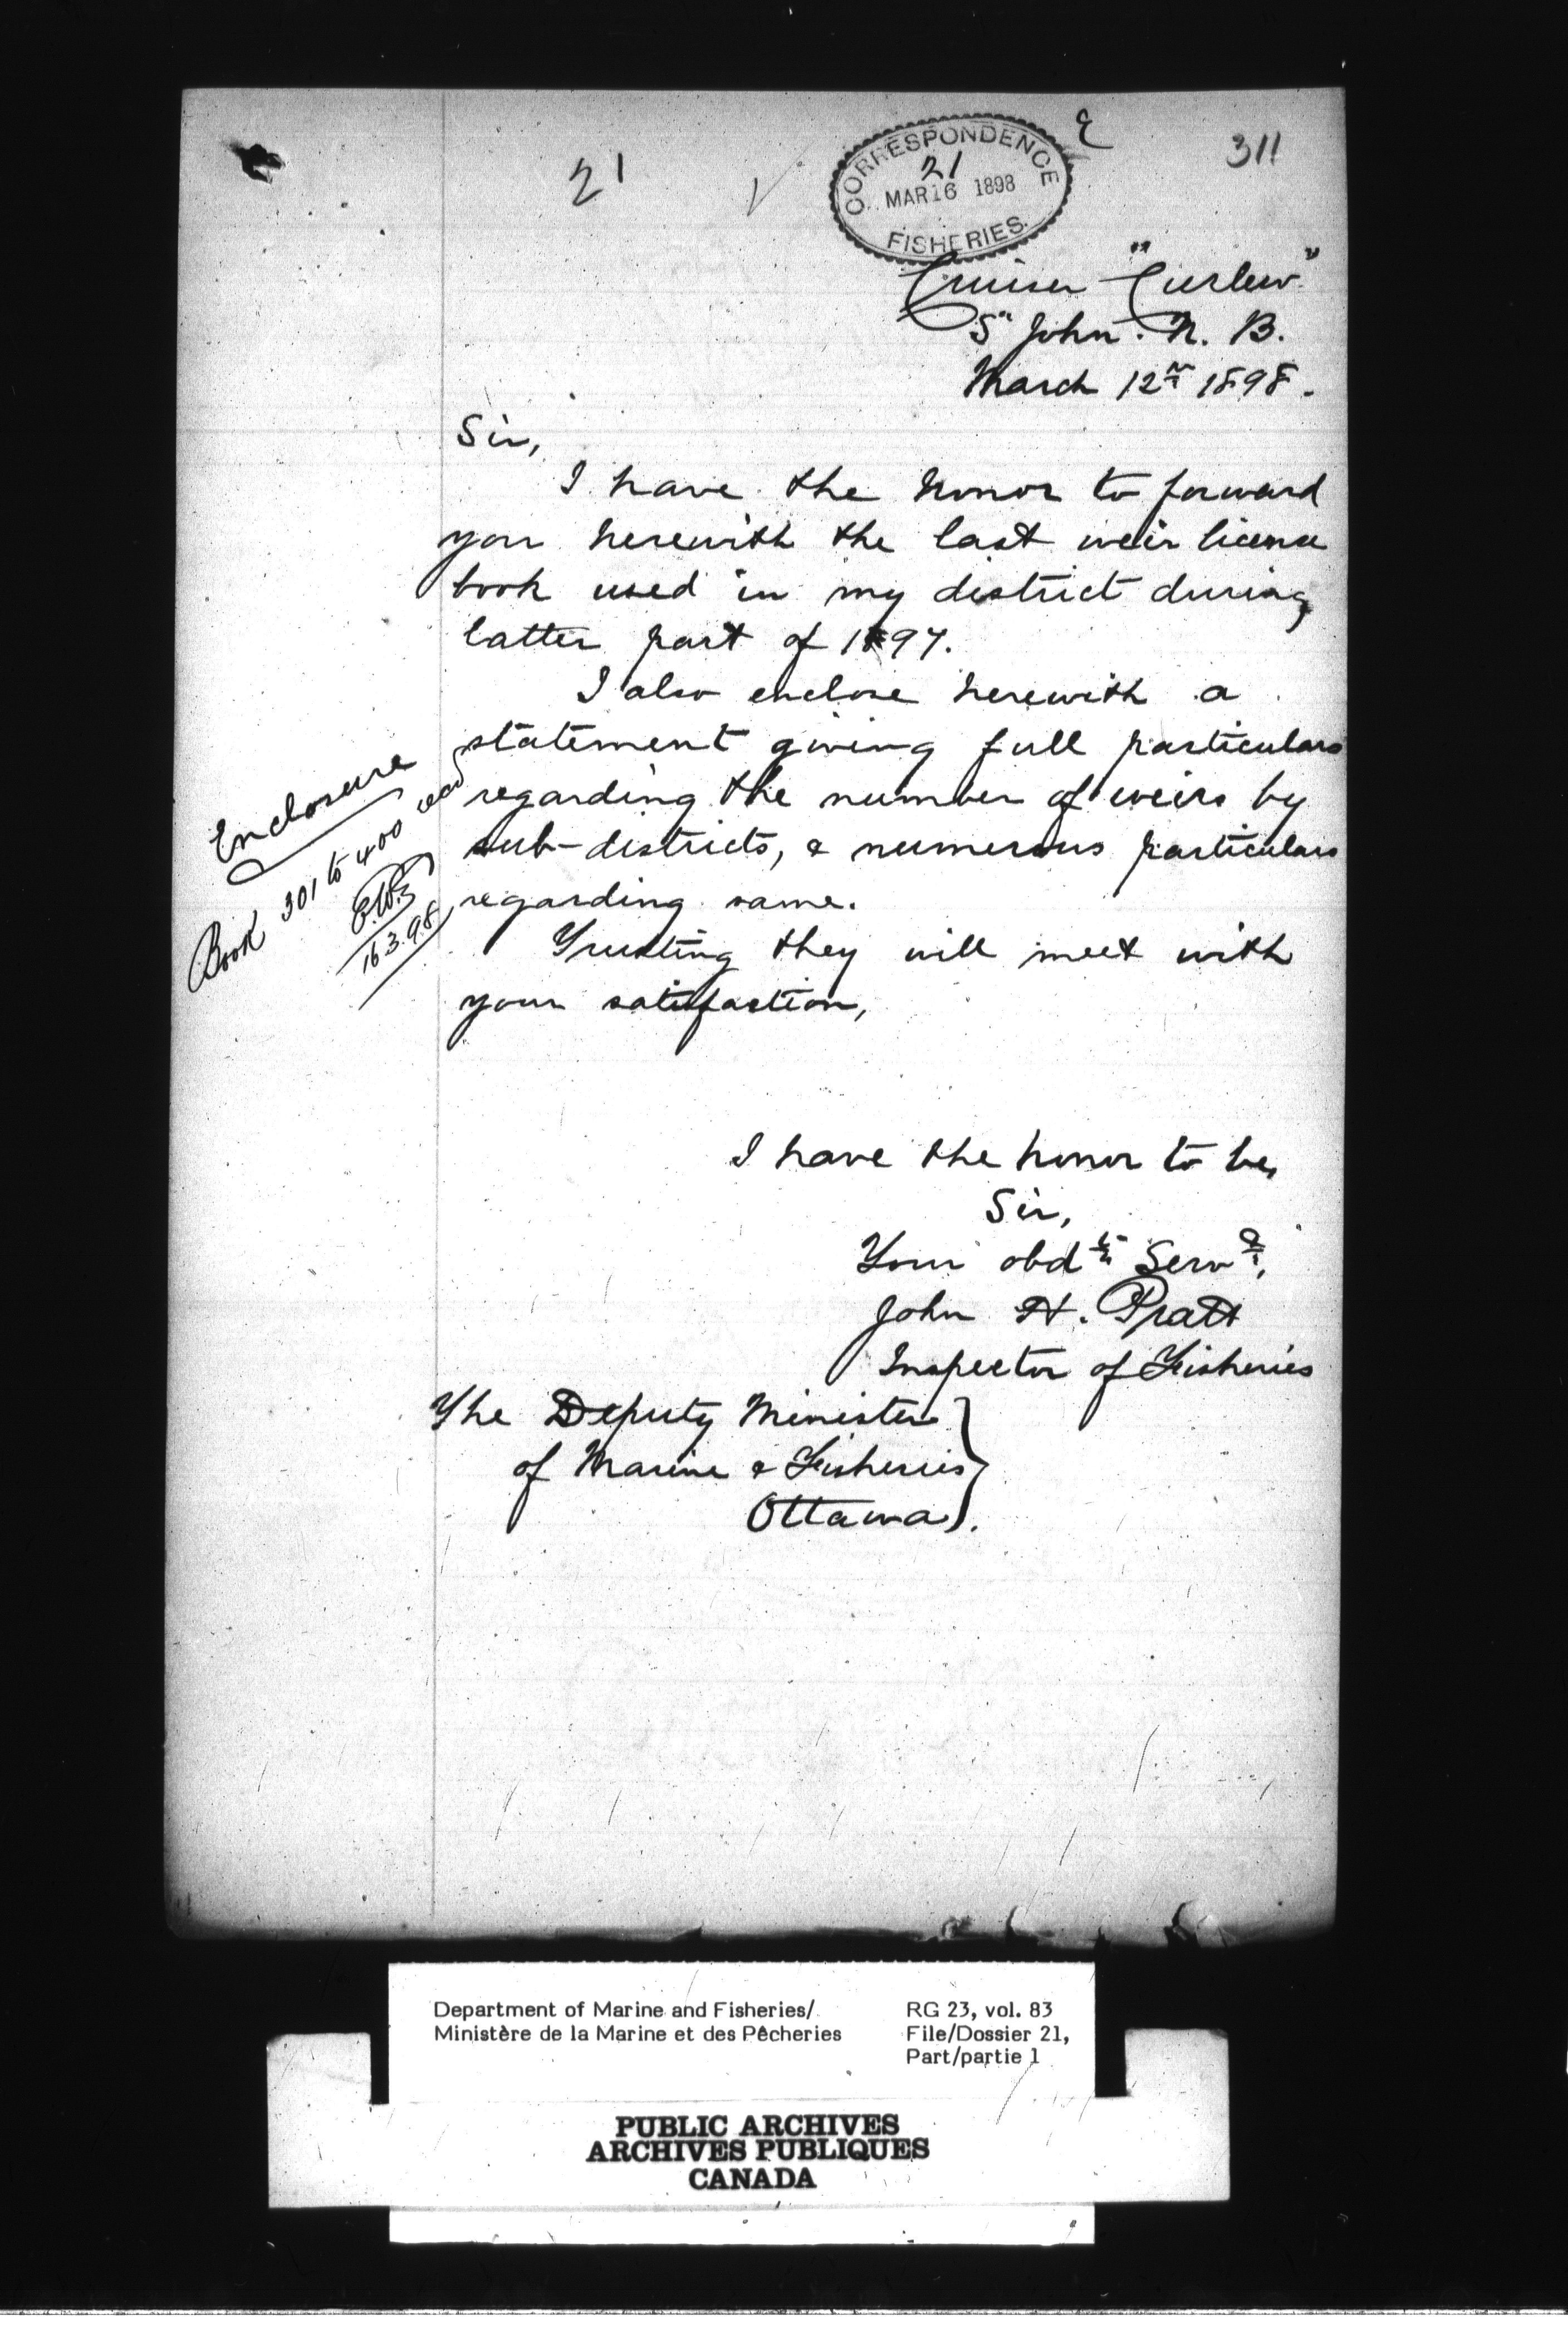 21
E
311
CORRESPONDENCE
21
MAR 16 1898
FISHERIES.
Cruiser "Curlew"
St John. N. B.
March 12th 1898.
Sir,
I have the honor to forward
you herewith the last weir licence
book used in my district during
latter part of 1897.
I also enclose herewith a
statement giving full particulars
regarding the number of weirs by
sub-districts, & numerous particulars
regarding same.
Trusting they will meet with
your satisfaction,
Enclosure
Book 301 to 400 recd
16.3.98
I have the honor to be,
Sir,
Your obdt Servt,
John H. Pratt
Inspector of Fisheries
The Deputy Minister
of Marine & Fisheries
Ottawa.
Department of Marine and Fisheries/
Ministère de la Marine et des Pêcheries
RG 23, vol. 83
File/Dossier 21,
Part/partie 1
PUBLIC ARCHIVES
ARCHIVES PUBLIQUES
CANADA